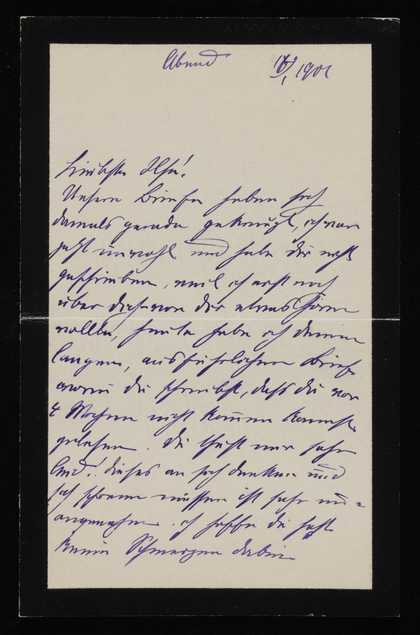 Abend 1901
Liebste Ilse!
Unsere Briefe haben sich
damals gerade gekreuzt, ich war
jetzt unwohl und habe dir nicht
geschrieben, weil ich erst noch
über von dir etwas hören
wollte, heute habe ich deinen
langen, ausführlichen Brief
worin du schreibst, dass du vor
4 Wochen nicht kommen kannst
gelesen. Du thust mir sehr
leid. dieses an sich denken und
sich schonen müssen ist sehr un=
angenehm. ich hoffe du hast
keine Schmerzen dabei